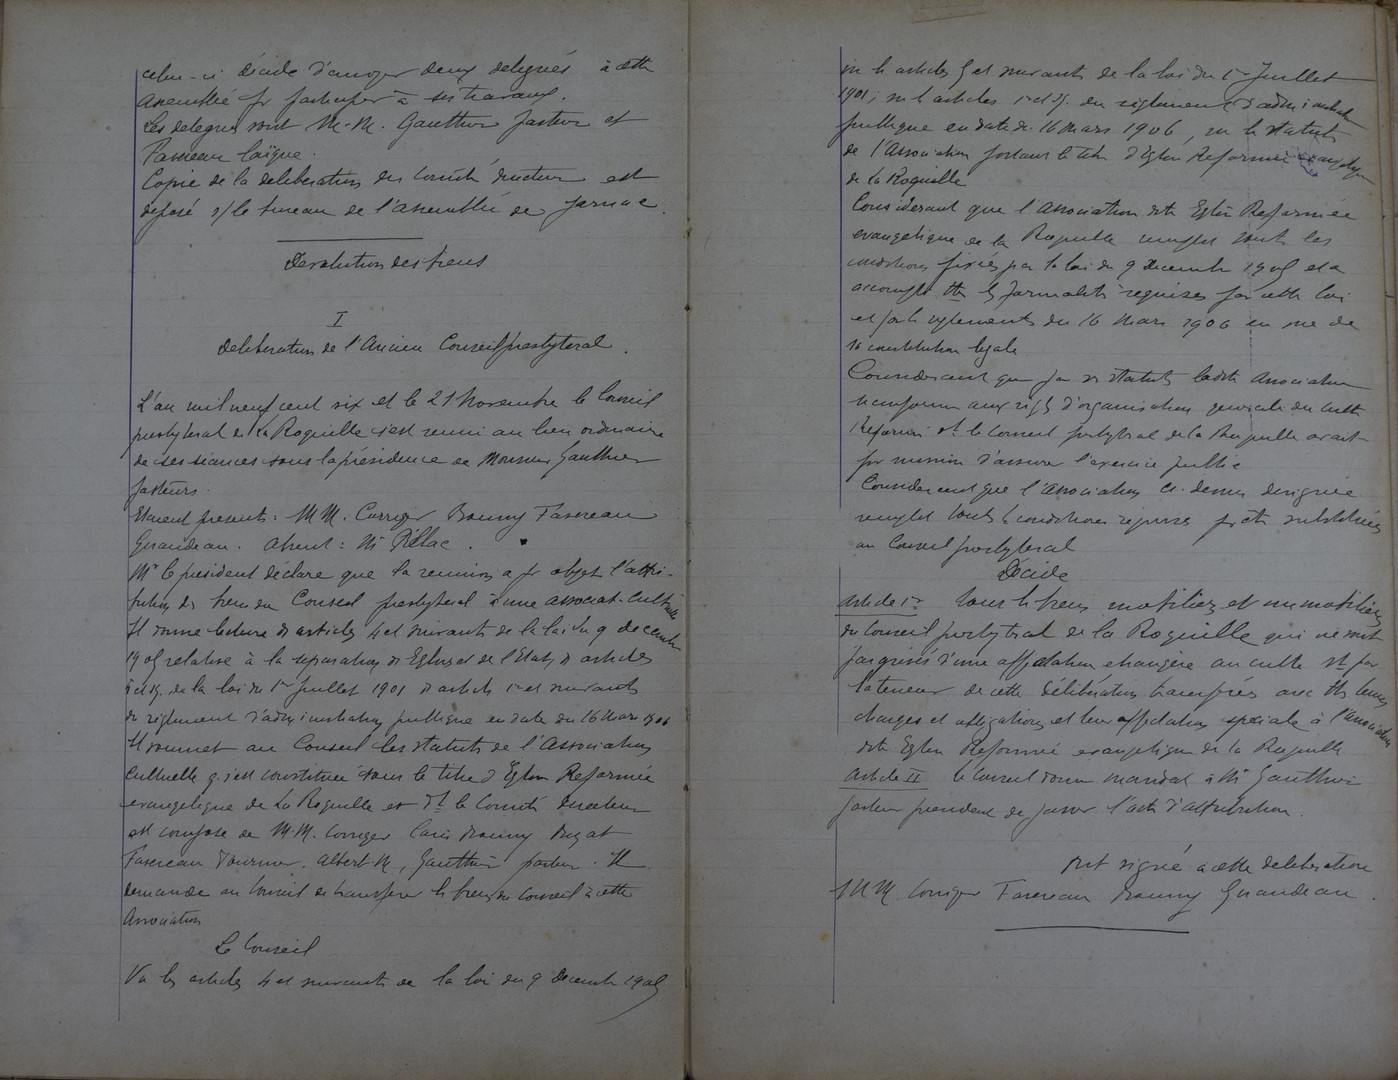 celui-ci décide d'envoyer deux delegués à cette
Assemblée pr participer à ses travaux.
Les delegués sont M.M. Gauthier pasteur et
Favereau laïque.
Copie de la deliberation du Comité directeur est
deposé s/le bureau de l'Assemblée de Jarnac.
Devolution des biens
I
Deliberation de l'Ancien Conseil presbyteral.
L'an mil neuf cent six et le 21 Novembre le Conseil
presbyteral de la Roquille s'est reuni au lieu ordinaire
de ses séances sous la présidence de Monsieur Gauthier
pasteur.
Etaient presents: MM. Corriger Bonny Favereau
Guandeau. Absent: Mr Pillac.
Mr le president déclare que la reunion a pr objet l'attri-
bution des biens du Conseil presbyteral à une associat. Cultuelle
Il donne lecture des articles 4 et suivants de la loi du 9 decembre
1905 relative à la separation des Eglises et de l'Etat, des articles
5 et sq. de la loi du 1er Juillet 1901 des articles 1er et suivants
du règlement d'administration publique en date du 16 Mars 1906
Il soumet au Conseil les statuts de l'Association
Cultuelle qui s'est constituée sous le titre d'Eglise Reformée
evangelique de La Roquille et dt le Comité directeur
est composé de M.M. Corriger Bonny
Favereau Fournier. Albert M, Gauthier pasteur. Il
demande au Conseil de transferer les biens du Conseil à cette
Association
Le Conseil
Vu les articles 4 et suivants de la loi du 9 decembre 1905
vu les articles 5 et suivants de la loi du 1er Juillet
1901; vu les articles 1 et sq. du règlement d'administration
publique en date du 16 Mars 1906, vu les statuts
de l'Association portant le titre d'Eglise Reformée evangelique
de La Roquille
Considerant que l'Association dite Eglise Reformée
evangelique de la Roquille remplit toutes les
conditions fixées par la loi du 9 Decembre 1905 et a
accompli ttes les formalités requises par cette loi
et par le reglement du 16 Mars 1906 en vue de
sa constitution legale
Considerant que par ses statuts ladite Association
se conforme aux regles d'organisation generale du culte
Reformé dt le Conseil presbyteral de la Roquille avait
pr mission d'assurer l'exercice public
Considerant que l'Association ci-dessus designée
remplit toutes les conditions requises pr être substituée
au Conseil presbyteral
Decide
Article 1er Tous les biens mobiliers et immobiliers
du Conseil presbyteral de la Roquille qui ne sont
pas grevés d'une affectation etrangère au culte st par
la teneur de cette délibération transférés avec ttes leurs
charges et obligations et leur affectation spéciale à l'association
dite Eglise Reformée evangelique de la Roquille
Article II Le Conseil donne mandat à Mr Gauthier
pasteur president de passer l'acte d'attribution.
Ont signé a cette deliberation
MM. Corriger Favereau Bonny Guandeau.